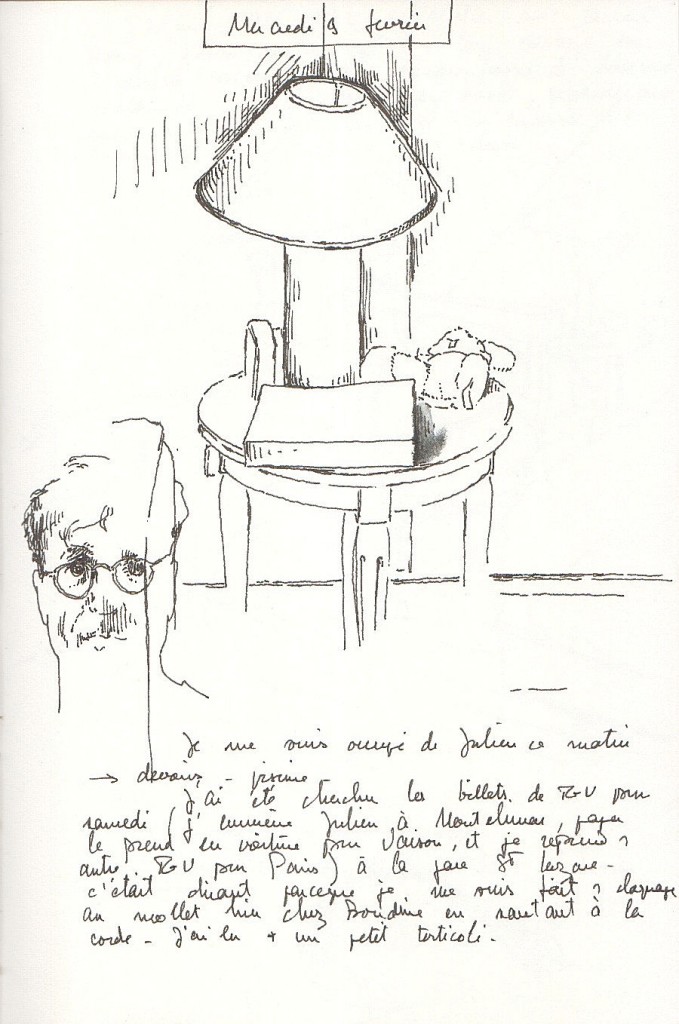 Mercredi 9 février
Je me suis occupé de Julien ce matin
→ devoirs - piscine
J'ai été chercher les billets de TGV pour
samedi (j'emmène Julien à Montelimar, papa
le prend en voiture pour Vaison, et je reprend 1
autre TGV pour Paris) à la gare St Lazare -
c'était distrait parceque je me suis fait 1 claquage
au mollet hier chez Blondine en sautant à la
corde - J'ai lu + un petit torticoli.